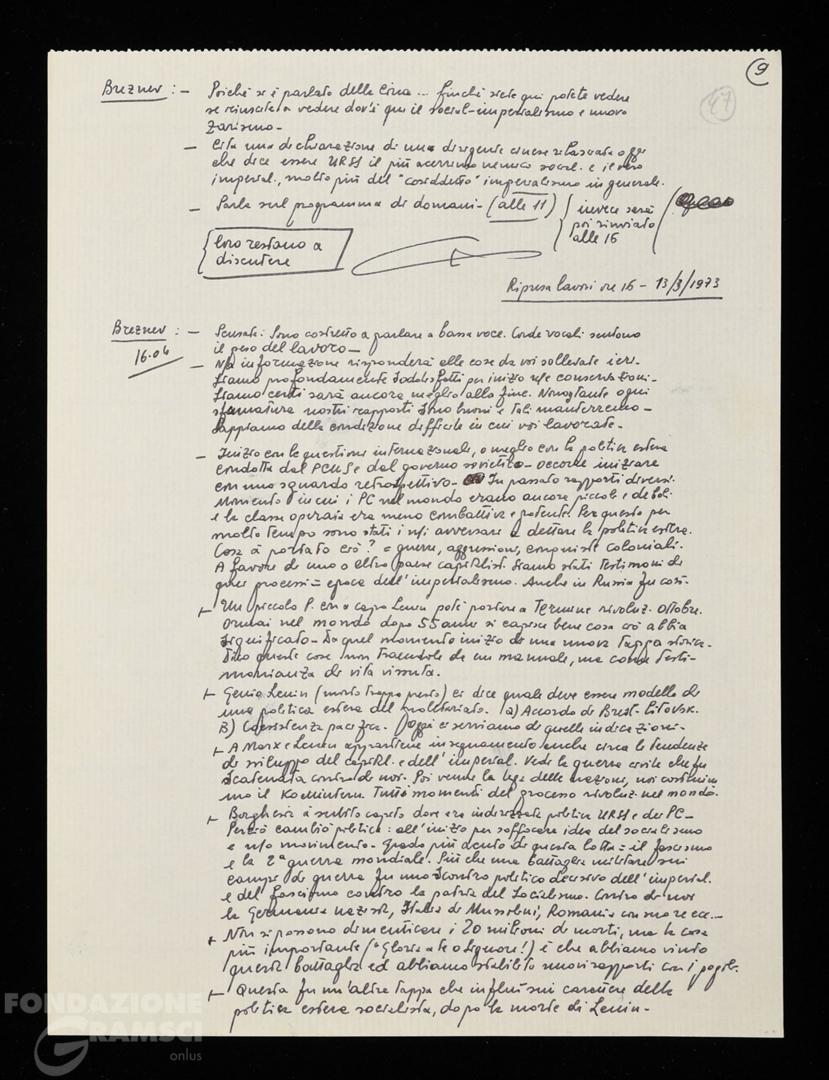 9
47
Breznev : — Poiché si è parlato della Cina ... finché siete qui potete vedere
se riuscite a vedere dov'è qui il social-imperialismo e nuovo
zarismo —
— Cita una dichiarazione di una dirigente cinese rilasciata oggi
che dice essere URSS il più acerrimo nemico social. e il vero
imperial., molto più del "cosiddetto" imperialismo in generale.
— Parla sul programma di domani — (alle 11) { invece sarà
poi rinviato
alle 16
{ loro restano a
discutere
Ripresa lavori ore 16 — 13/3/1973
Breznev : — Scusate: sono costretto a parlare a bassa voce. Corde vocali sentono
16.04
il peso del lavoro —
— informazione risponderà alle cose da voi sollevate ieri.
Siamo profondamente soddisfatti per inizio conversazioni.
Siamo certi sarà ancora meglio alla fine. Nonostante ogni
sfumatura nostri rapporti sono buoni e tali manterremo —
Sappiamo della condizione difficile in cui voi lavorate.
— Inizio con le questione internazionale, o meglio con la politica estera
condotta dal PCUS e dal governo sovietico — occorre iniziare
con uno sguardo retrospettivo — In passato rapporti diversi.
Momento in cui i PC nel mondo erano ancora piccoli e deboli
e la classe operaia era meno combattiva e potente. Per questo per
molto tempo sono stati i avversari a dettare la politica estera.
Cosa à portato ciò? = guerre, aggressioni, conquiste coloniali.
A favore di uno o altro paese capitalist. Siamo stati testimoni di
quei processi = epoca dell'imperialismo. Anche in Russia fu così.
+ Un piccolo P. con a capo Lenin poté portare a termine rivoluz. ottobre.
Ormai nel mondo dopo 55 anni si capisce bene cosa ciò abbia
significato — Da quel momento inizio di una nuova tappa storica.
Dico queste cose non traendole da un manuale, ma come testi-
monianza di vita vissuta.
+ Genio Lenin (morto troppo presto) ci dice quale deve essere modello di
una politica estera del proletariato. a) Accordo di Brest-Litovsk.
B) Coesistenza pacifica. Oggi ci serviamo di quelle indicazioni.
+ A Marx e Lenin appartiene insegnamento anche circa le tendenze
di sviluppo del capital. e dell'imperial. Vedi la guerra civile che fu
scatenata contro di noi. Poi venne la lega delle nazioni, noi costituim
mo il Komintern. Tutti momenti del processo rivoluz. nel mondo.
+ Borghesia à subito capito dove era indirizzata politica URSS e dei PC —
Perciò cambiò politica: all'inizio per soffocare idea del socialismo
e movimento. Grado più acuto di questa lotta = il fascismo
e la 2ª guerra mondiale. Più che una battaglia militare sui
campi di guerra fu uno scontro politico decisivo dell'imperial.
e del fascismo contro la patria del socialismo. Contro di noi
la Germania nazist, Italia di Mussolini, Romania con suo re ecc...
+ Non si possono dimenticare i 20 milioni di morti, ma la cosa
più importante ("Gloria a te o Signore!) è che abbiamo vinto
questa battaglia ed abbiamo stabilito nuovi rapporti con i popoli.
+ Questa fu un'altra tappa che influì sui carattere della
politica estera socialista, dopo la morte di Lenin —
FONDAZIONE
GRAMSCI
onlus